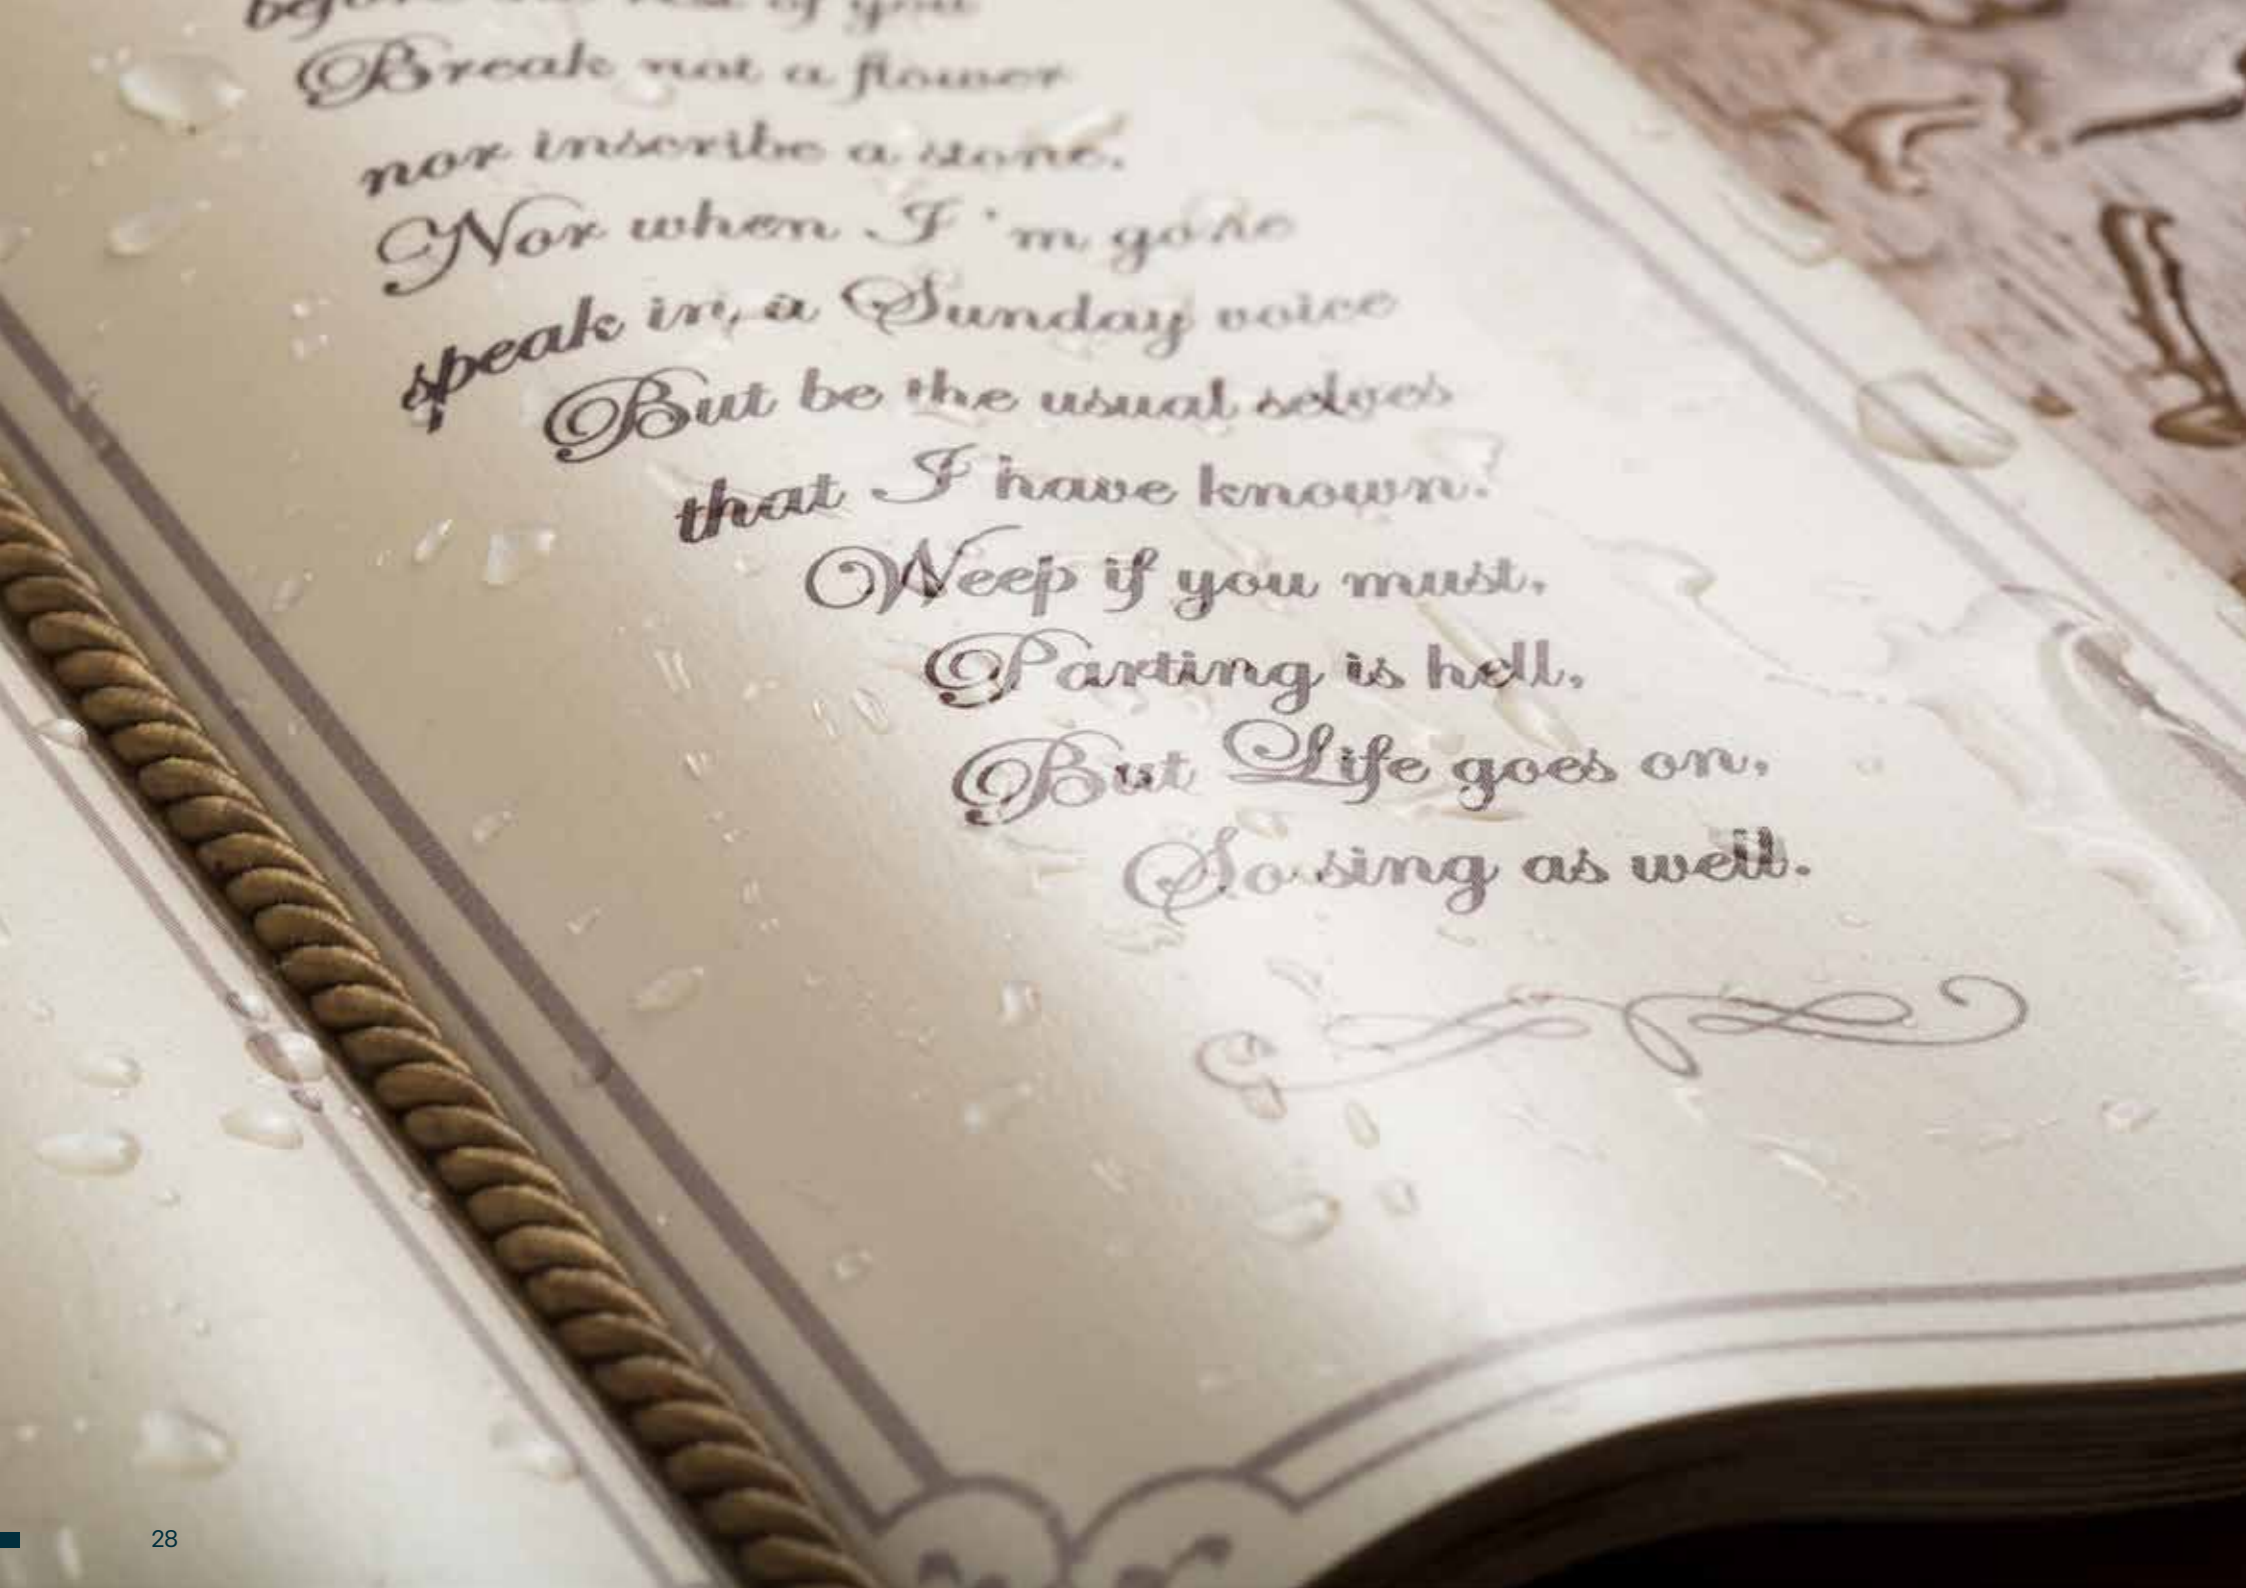 before the rest of you
Break not a flower
nor inscribe a stone.
Nor when I'm gone
speak in a Sunday voice
But be the usual selves
that I have known.
Weep if you must,
Parting is hell,
But Life goes on,
So sing as well.
28